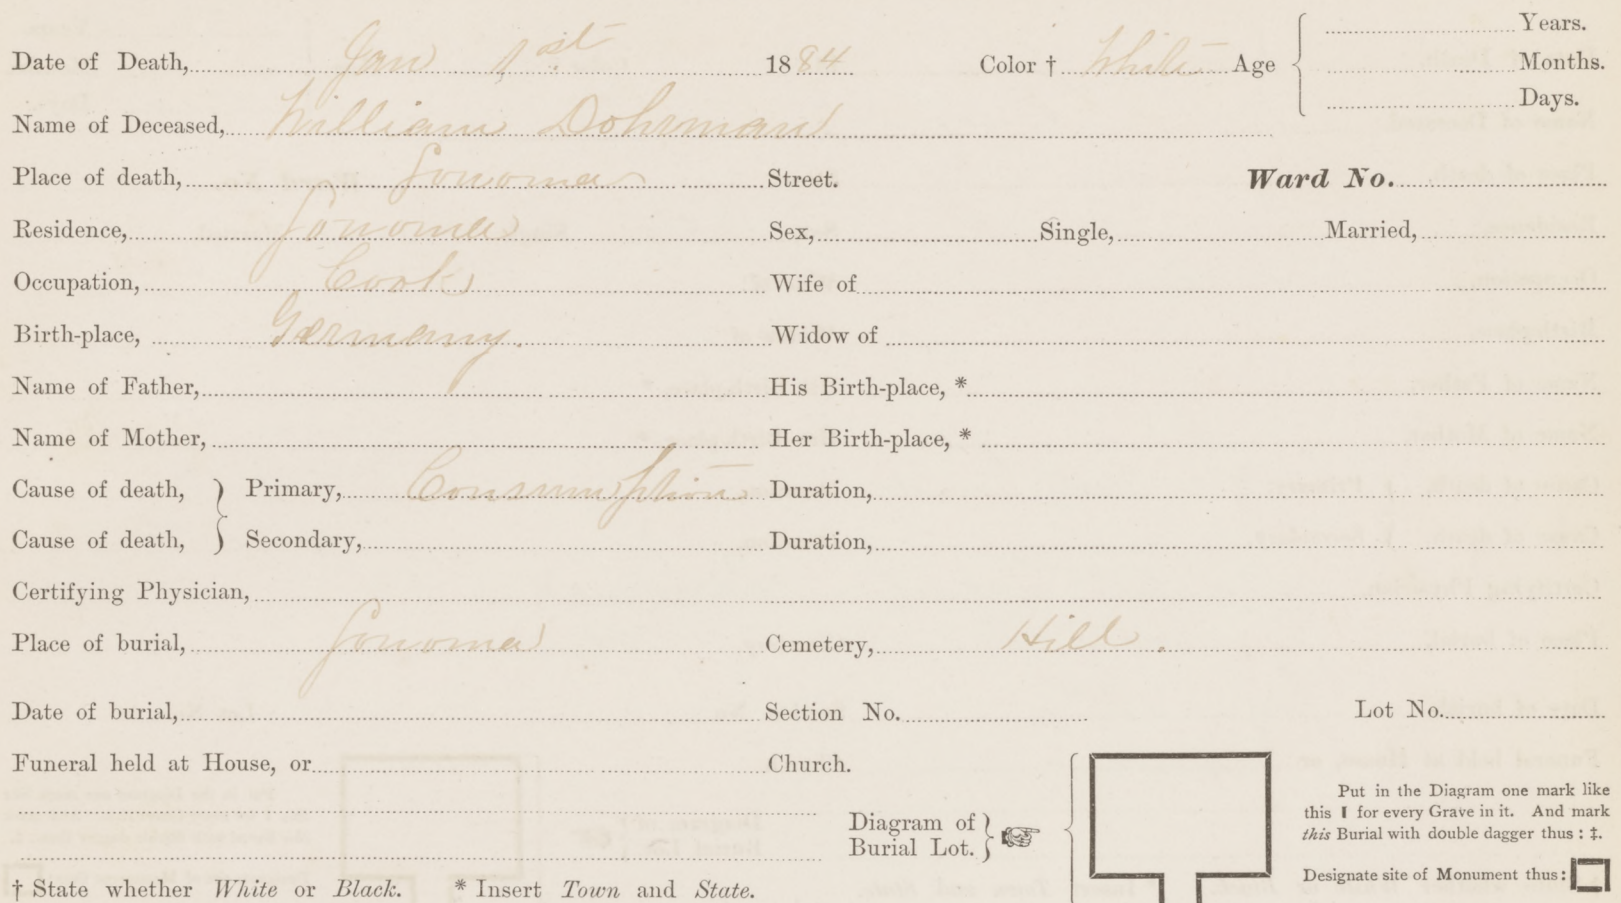 Date of Death, Jan 1st 1884 Color † White Age Years.
Months.
Days.
Name of Deceased, William Dohrman
Place of death, Sonoma Street. Ward No.
Residence, Sonoma Sex, Single, Married,
Occupation, Cook Wife of
Birth-place, Germany. Widow of
Name of Father, His Birth-place, *
Name of Mother, Her Birth-place, *
Cause of death, } Primary, Consumption Duration,
Cause of death, } Secondary, Duration,
Certifying Physician,
Place of burial, Sonoma Cemetery, Hill.
Date of burial, Section No. Lot No.
Funeral held at House, or Church.
Diagram of
Burial Lot. }
Put in the Diagram one mark like
this I for every Grave in it. And mark
this Burial with double dagger thus : ‡.
Designate site of Monument thus:
† State whether White or Black. * Insert Town and State.